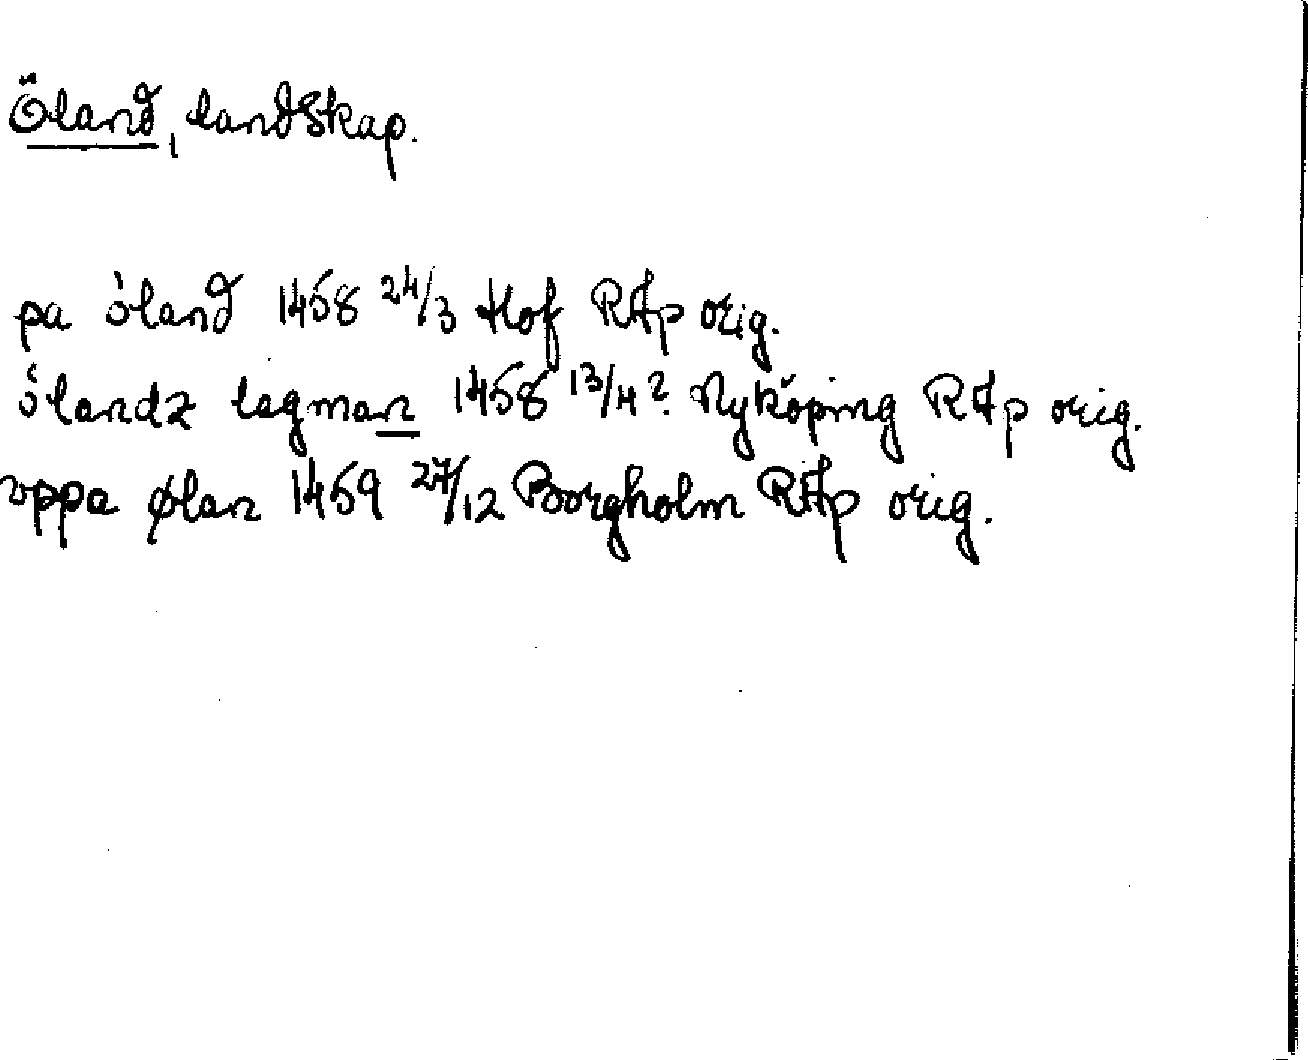 Öland, landskap.
pa óland 1458 24/3 Hof RAp orig.
ólandz lagman 1458 13/4? Nyköping RAp orig.
vppa ølan 1459 27/12 Borgholm RAp orig.